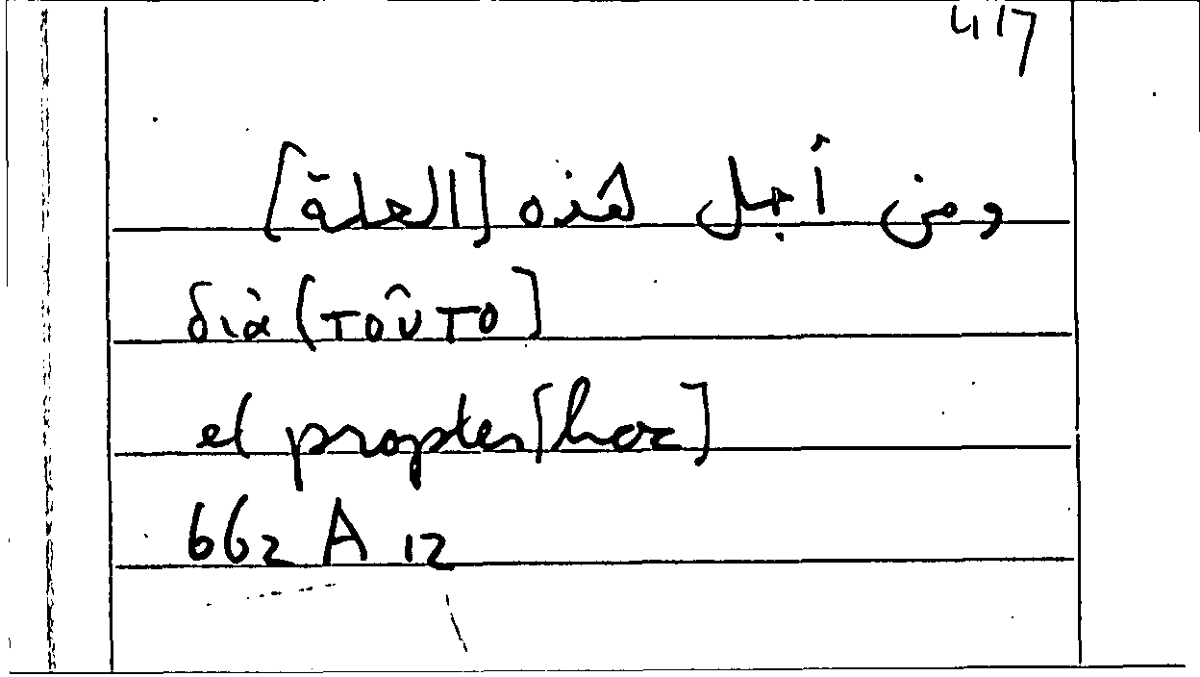 417
ومن أجل هذه [العلة]
διὰ (τοῦτο]
et propter [hoc]
662 A 12